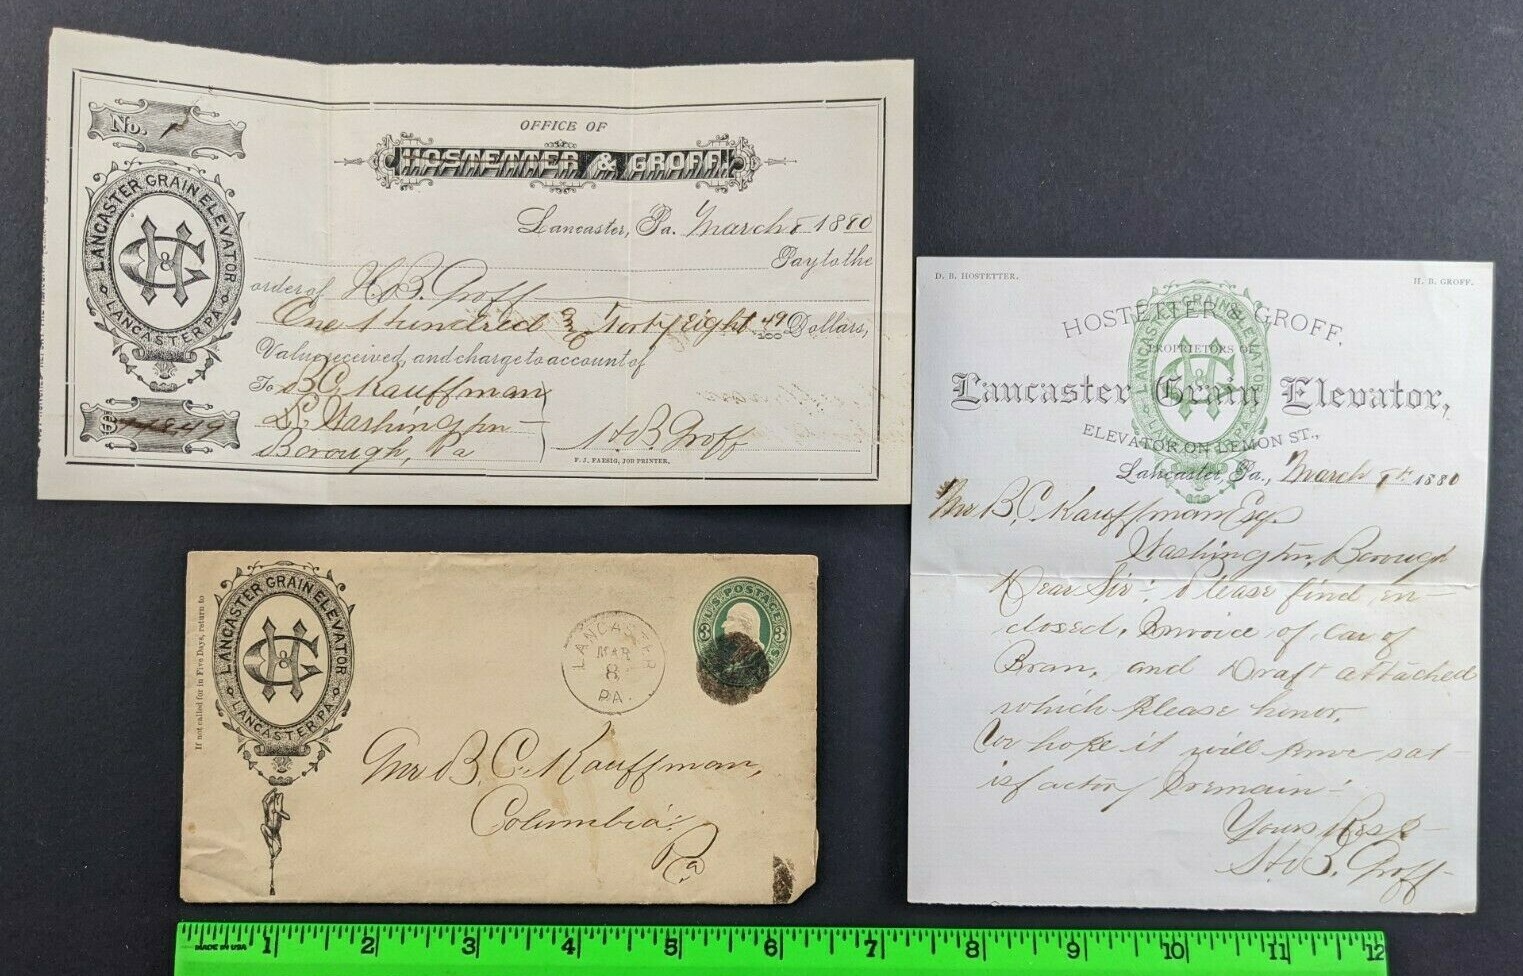 No. 1
OFFICE OF
HOSTETTER & GROFF.
LANCASTER GRAIN ELEVATOR
H & G
LANCASTER, PA.
Lancaster, Pa. March 8 1880
Pay to the
order of H. B. Groff
One Hundred & Forty Eight 49/100 Dollars,
Value received, and charge to account of
To B. C. Kauffman
Washington
Borough, Pa
H. B. Groff
$148.49
F. J. FAESIG, JOB PRINTER.
D. B. HOSTETTER.
H. B. GROFF.
HOSTETTER & GROFF.
PROPRIETORS OF
Lancaster Grain Elevator,
ELEVATOR ON LEMON ST.,
LANCASTER GRAIN ELEVATOR
H & G
LANCASTER, PA.
Lancaster, Pa., March 8th 1880
Mr B. C. Kauffman Esq.
Washington, Borough
Dear Sir: Please find en-
closed, Invoice of Car of
Bran, and Draft attached
which please honor,
We hope it will prove sat-
isfactory I remain-
Yours Resp-
H. B. Groff-
If not called for in Five Days, return to
LANCASTER GRAIN ELEVATOR
H & G
LANCASTER, PA.
LANCASTER
MAR
8
PA.
U.S. POSTAGE
3 3
Mr B. C. Kauffman,
Columbia.
Pa
MADE IN USA
1 2 3 4 5 6 7 8 9 10 11 12